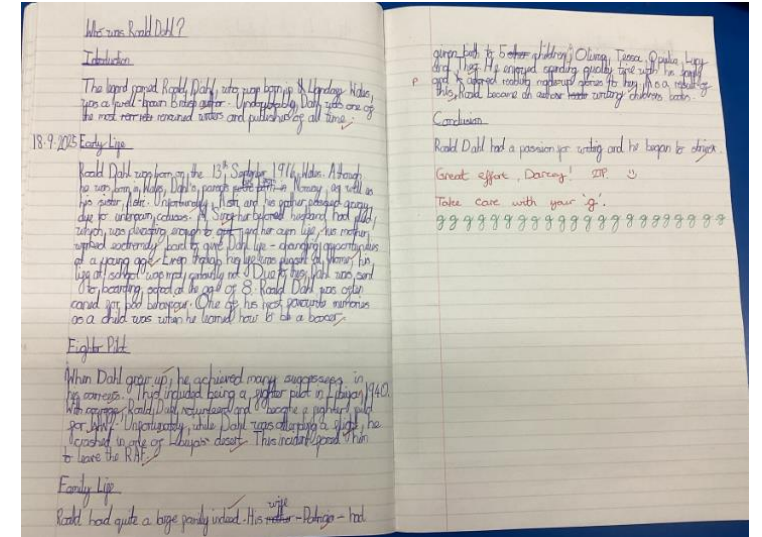 Who was Roald Dahl?
Introduction
The legend named Roald Dahl, who was born in Llandaff, Wales,
was a well-known British author. Undoubtably, Dahl was one of
the most renowned writers and published of all time.
18.9.2025 Early Life
Roald Dahl was born on the 13th September 1916, Wales. Although
he was born in Wales, Dahl's parents were born in Norway, as well as
his sister, Astri. Unfortunately, Astri and his father passed away
due to unknown causes. Since her beloved husband had died,
which was devasting enough to her own life, his mother
worked extremely hard to give Dahl life-changing opportunities
at a young age. Even though his life was pleasant at home, his
life at school was most certainly not. Due to this, Dahl was sent
to boarding school at the age of 8. Roald Dahl was often
caned for bad behaviour. One of his most favourite memories
as a child was when he learned how to be a boxer.
Fighter Pilot
When Dahl grew up, he achieved many successes in
his careers. This included being a fighter pilot in Libya in 1940.
With courage, Roald Dahl volunteered and became a fighter pilot
for WW2. Unfortunately, while Dahl was attempting a flight, he
crashed in one of Libya's desert. This incident forced him
to leave the RAF.
Family Life
Roald had quite a large family indeed. His wife - Patricia - had
given birth to 5 children; Olivia, Tessa, Ophelia, Lucy
and Theo. He enjoyed spending quality time with his family
P and adored reading madeup stories to them. As a result of
this, Roald became an author writing childrens books.
Conclusion
Roald Dahl had a passion for writing and he began to
Great effort, Darcey! 2HP
Take care with your 'g'.
g g g g g g g g g g g g g g g g g g g g g g